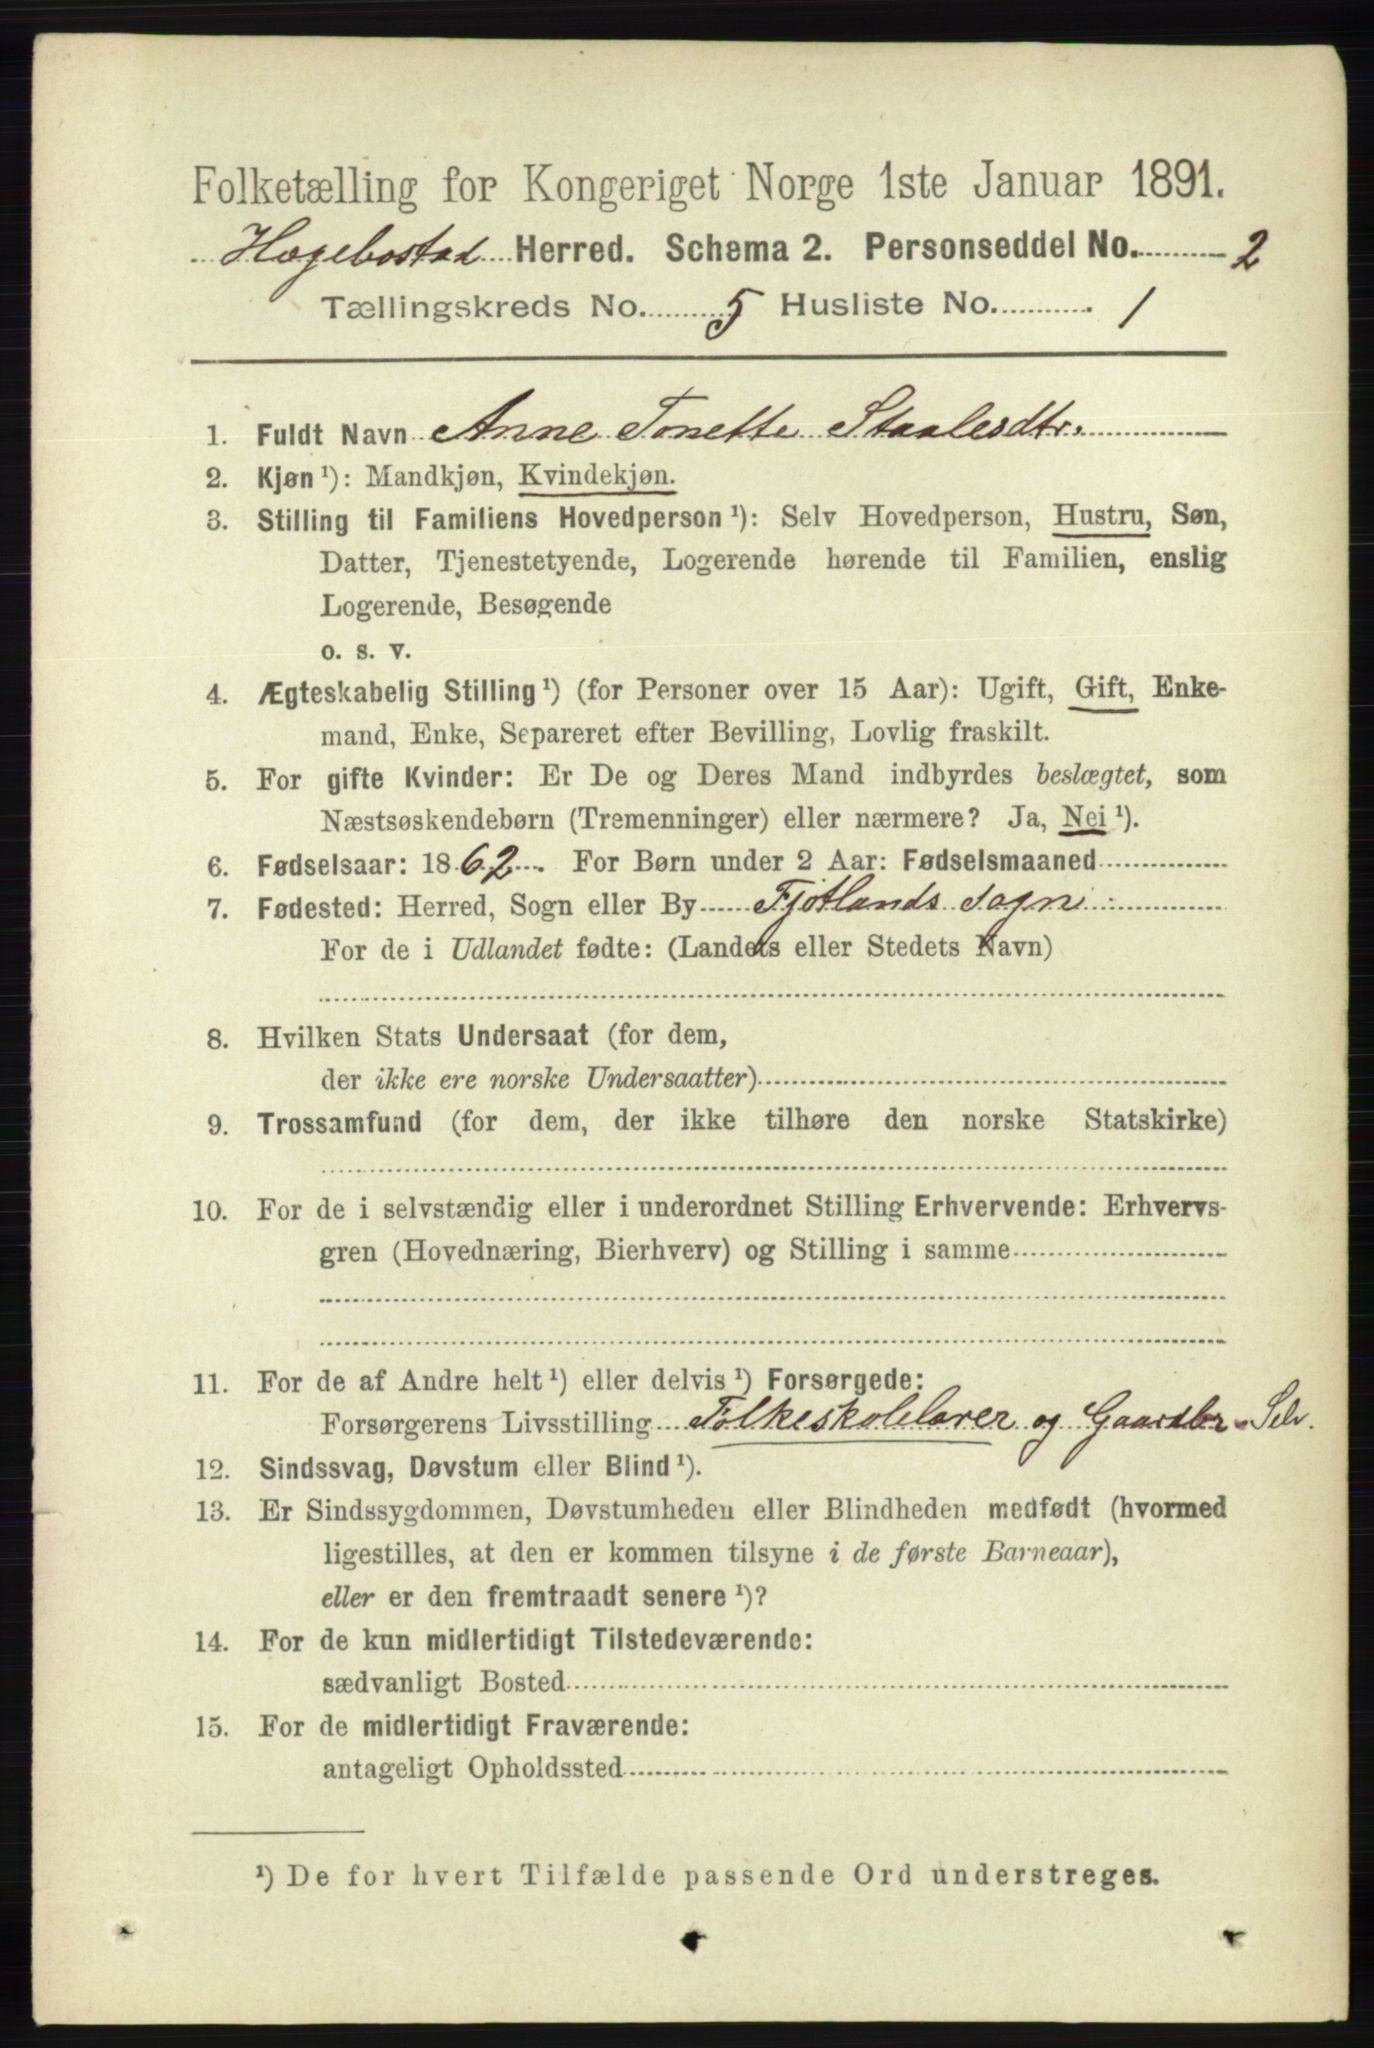 Folketælling for Kongeriget Norge 1ste Januar 1891.
Hægebostad Herred. Schema 2. Personseddel No. 2
Tællingskreds No. 5 Husliste No. 1
1. Fuldt Navn Anne Tonette Staalesdtr.
2. Kjøn ¹): Mandkjøn, Kvindekjøn.
3. Stilling til Familiens Hovedperson ¹): Selv Hovedperson, Hustru, Søn,
Datter, Tjenestetyende, Logerende hørende til Familien, enslig
Logerende, Besøgende
o. s. v.
4. Ægteskabelig Stilling ¹) (for Personer over 15 Aar): Ugift, Gift, Enke-
mand, Enke, Separeret efter Bevilling, Lovlig fraskilt.
5. For gifte Kvinder: Er De og Deres Mand indbyrdes beslægtet, som
Næstsøskendebørn (Tremenninger) eller nærmere? Ja, Nei ¹).
6. Fødselsaar: 1862. For Børn under 2 Aar: Fødselsmaaned
7. Fødested: Herred, Sogn eller By Fjotlands Sogn
For de i Udlandet fødte: (Landets eller Stedets Navn)
8. Hvilken Stats Undersaat (for dem,
der ikke ere norske Undersaatter)
9. Trossamfund (for dem, der ikke tilhøre den norske Statskirke)
10. For de i selvstændig eller i underordnet Stilling Erhvervende: Erhvervs-
gren (Hovednæring, Bierhverv) og Stilling i samme
11. For de af Andre helt ¹) eller delvis ¹) Forsørgede:
Forsørgerens Livsstilling Folkeskolelærer og Gaardbr - Selv.
12. Sindssvag, Døvstum eller Blind ¹).
13. Er Sindssygdommen, Døvstumheden eller Blindheden medfødt (hvormed
ligestilles, at den er kommen tilsyne i de første Barneaar),
eller er den fremtraadt senere ¹)?
14. For de kun midlertidigt Tilstedeværende:
sædvanligt Bosted
15. For de midlertidigt Fraværende:
antageligt Opholdssted
¹) De for hvert Tilfælde passende Ord understreges.